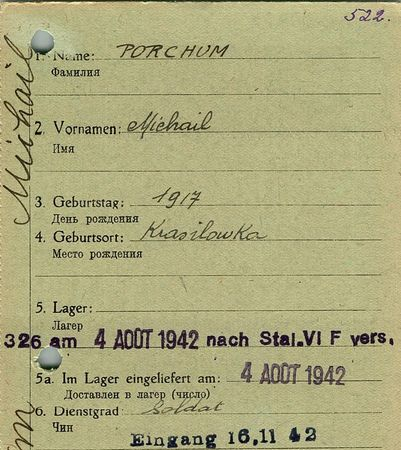 522.
1. Name: PORCHUM
Фамилия
2. Vornamen: Michail
Имя
3. Geburtstag: 1917
День рождения
4. Geburtsort: Krasilowka
Место рождения
5. Lager:
Лагер
326 am 4 AOÛT 1942 nach Stal. VI F vers.
5a. Im Lager eingeliefert am: 4 AOÛT 1942
Доставлен в лагер (число)
6. Dienstgrad: Soldat
Чин
Eingang 16.11 42
Michail